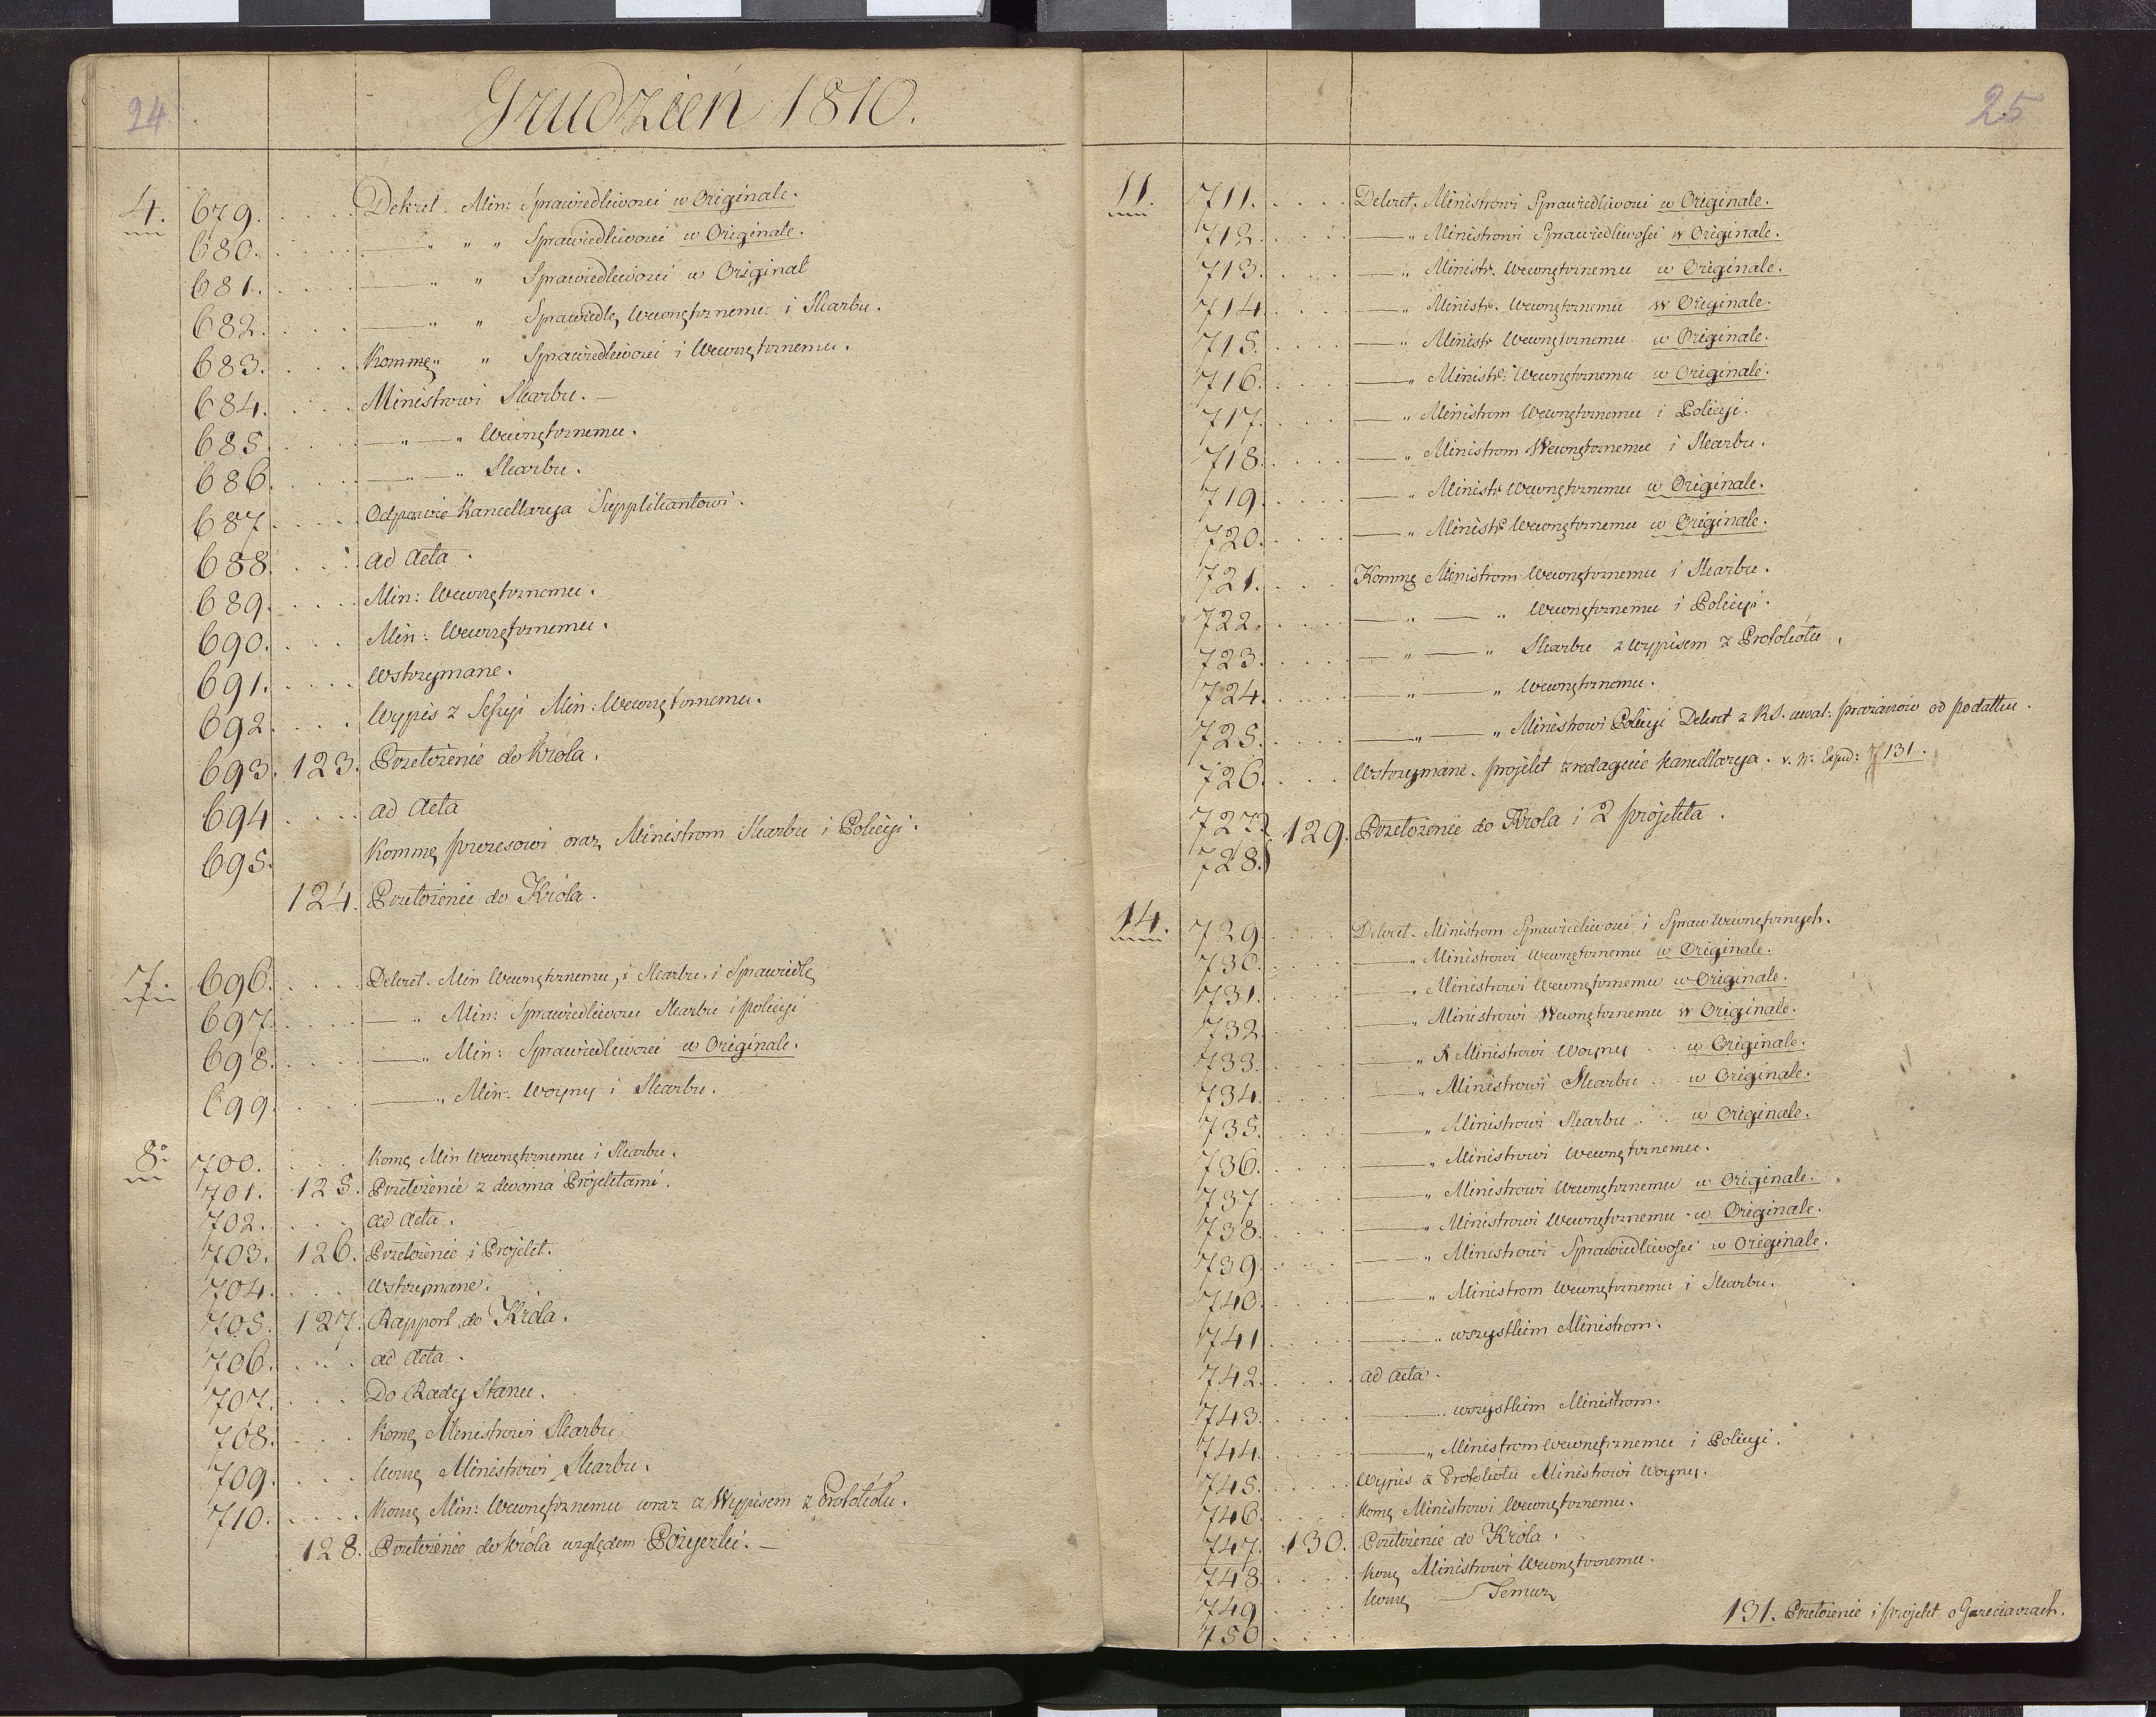 24
Grudzień 1810.
4. 679. Dekret. Min: Sprawiedliwości w Originale.
680. " " " Sprawiedliwości w Originale.
681. " " Sprawiedliwości w Original
682. " " Sprawiedlę, Wewnętrznemu i Skarbu.
683. Kommę " " Sprawiedliwości i Wewnętrznemu.
684. Ministrowi Skarbu. —
685. — " — " Wewnętrznemu.
686. — " — " Skarbu.
687. Odpowie Kancellaryja Supplikantowi.
688. ad acta.
689. Min: Wewnętrznemu.
690. Min: Wewnętrznemu.
691. Wstrzymane.
692. Wypis z Sessyi Min: Wewnętrznemu.
693. 123. Przełożenie do Króla.
694 ad acta
695. Kommę prezesowi oraz Ministrom Skarbu i Policyi.
124. Przełożenie do Króla.
7. 696. Dekret. Min Wewnętrznemu, i Skarbu. i Sprawiedlę
697. — " Min: Sprawiedliwości Skarbu i policyi
698. — " Min: Sprawiedliwości w Originale.
699. — " Min: Woyny i Skarbu.
8. 700. Komę Min Wewnętrznemu i Skarbu.
701. 125. Przełożenie z dwoma Projektami.
702. ad acta.
703. 126. Przełożenie i Projekt.
704. Wstrzymane.
705. 127. Rapport do Króla.
706. ad acta.
707. Do Rady Stanu.
708. Komę Ministrowi Skarbu
709. Komę Ministrowi Skarbu.
710. Komę Min: Wewnętrznemu wraz z Wypisem z Protokółu.
128. Przełożenie do Króla względem Pożyczki. —
25
11. 711. Dekret. Ministrowi Sprawiedliwości w Originale.
712. — " Ministrowi Sprawiedliwości w Originale.
713. — " Ministr. Wewnętrznemu w Originale.
714. — " Ministr. Wewnętrznemu w Originale.
715. — " Ministr Wewnętrznemu w Originale.
716. — " Ministr: Wewnętrznemu w Originale.
717. — " Ministrom Wewnętrznemu i Policyi.
718. — " Ministrom Wewnętrznemu i Skarbu.
719. — " Ministr Wewnętrznemu w Originale.
720. — " Ministr Wewnętrznemu w Originale.
721. Kommę Ministrom Wewnętrznemu i Skarbu.
722. — " — " Wewnętrznemu i Policyi.
723. — " — " Skarbu z wypisem z Protokółu.
724. — " — " Wewnętrznemu.
725. — " — " Ministrowi Policyi Dekret z R.S. uwal: od podatku.
726. Wstrzymane. projekt zredaguie kancellarya. v. N: Exped: 131.
727. 129. Przełożenie do Króla i 2 projekta.
728.
14. 729. Dekret. Ministrom Sprawiedliwości i Spraw Wewnętrznych.
730. — " Ministrowi Wewnętrznemu w Originale.
731. — " Ministrowi Wewnętrznemu w Originale.
732. — " Ministrowi Wewnętrznemu w Originale.
733. — " Ministrowi Woyny w Originale.
734. — " Ministrowi Skarbu w Originale.
735. — " Ministrowi Skarbu w Originale.
736. — " Ministrowi Wewnętrznemu.
737 — " Ministrowi Wewnętrznemu w Originale.
738. — " Ministrowi Wewnętrznemu w Originale.
739. — " Ministrowi Sprawiedliwości w Originale.
740. — " Ministrom Wewnętrznemu i Skarbu.
741 — " wszystkim Ministrom.
742. ad acta.
743. — " wszystkim Ministrom.
744. — " Ministrom Wewnętrznemu i Policyi.
745. Wypis z Protokółu Ministrowi Woyny.
746. Komę Ministrowi Wewnętrznemu.
747. 130. Przełożenie do Króla.
748. Komę Ministrowi Wewnętrznemu.
749. Komę — Temuz
750. 131. Przełożenie i projekt o